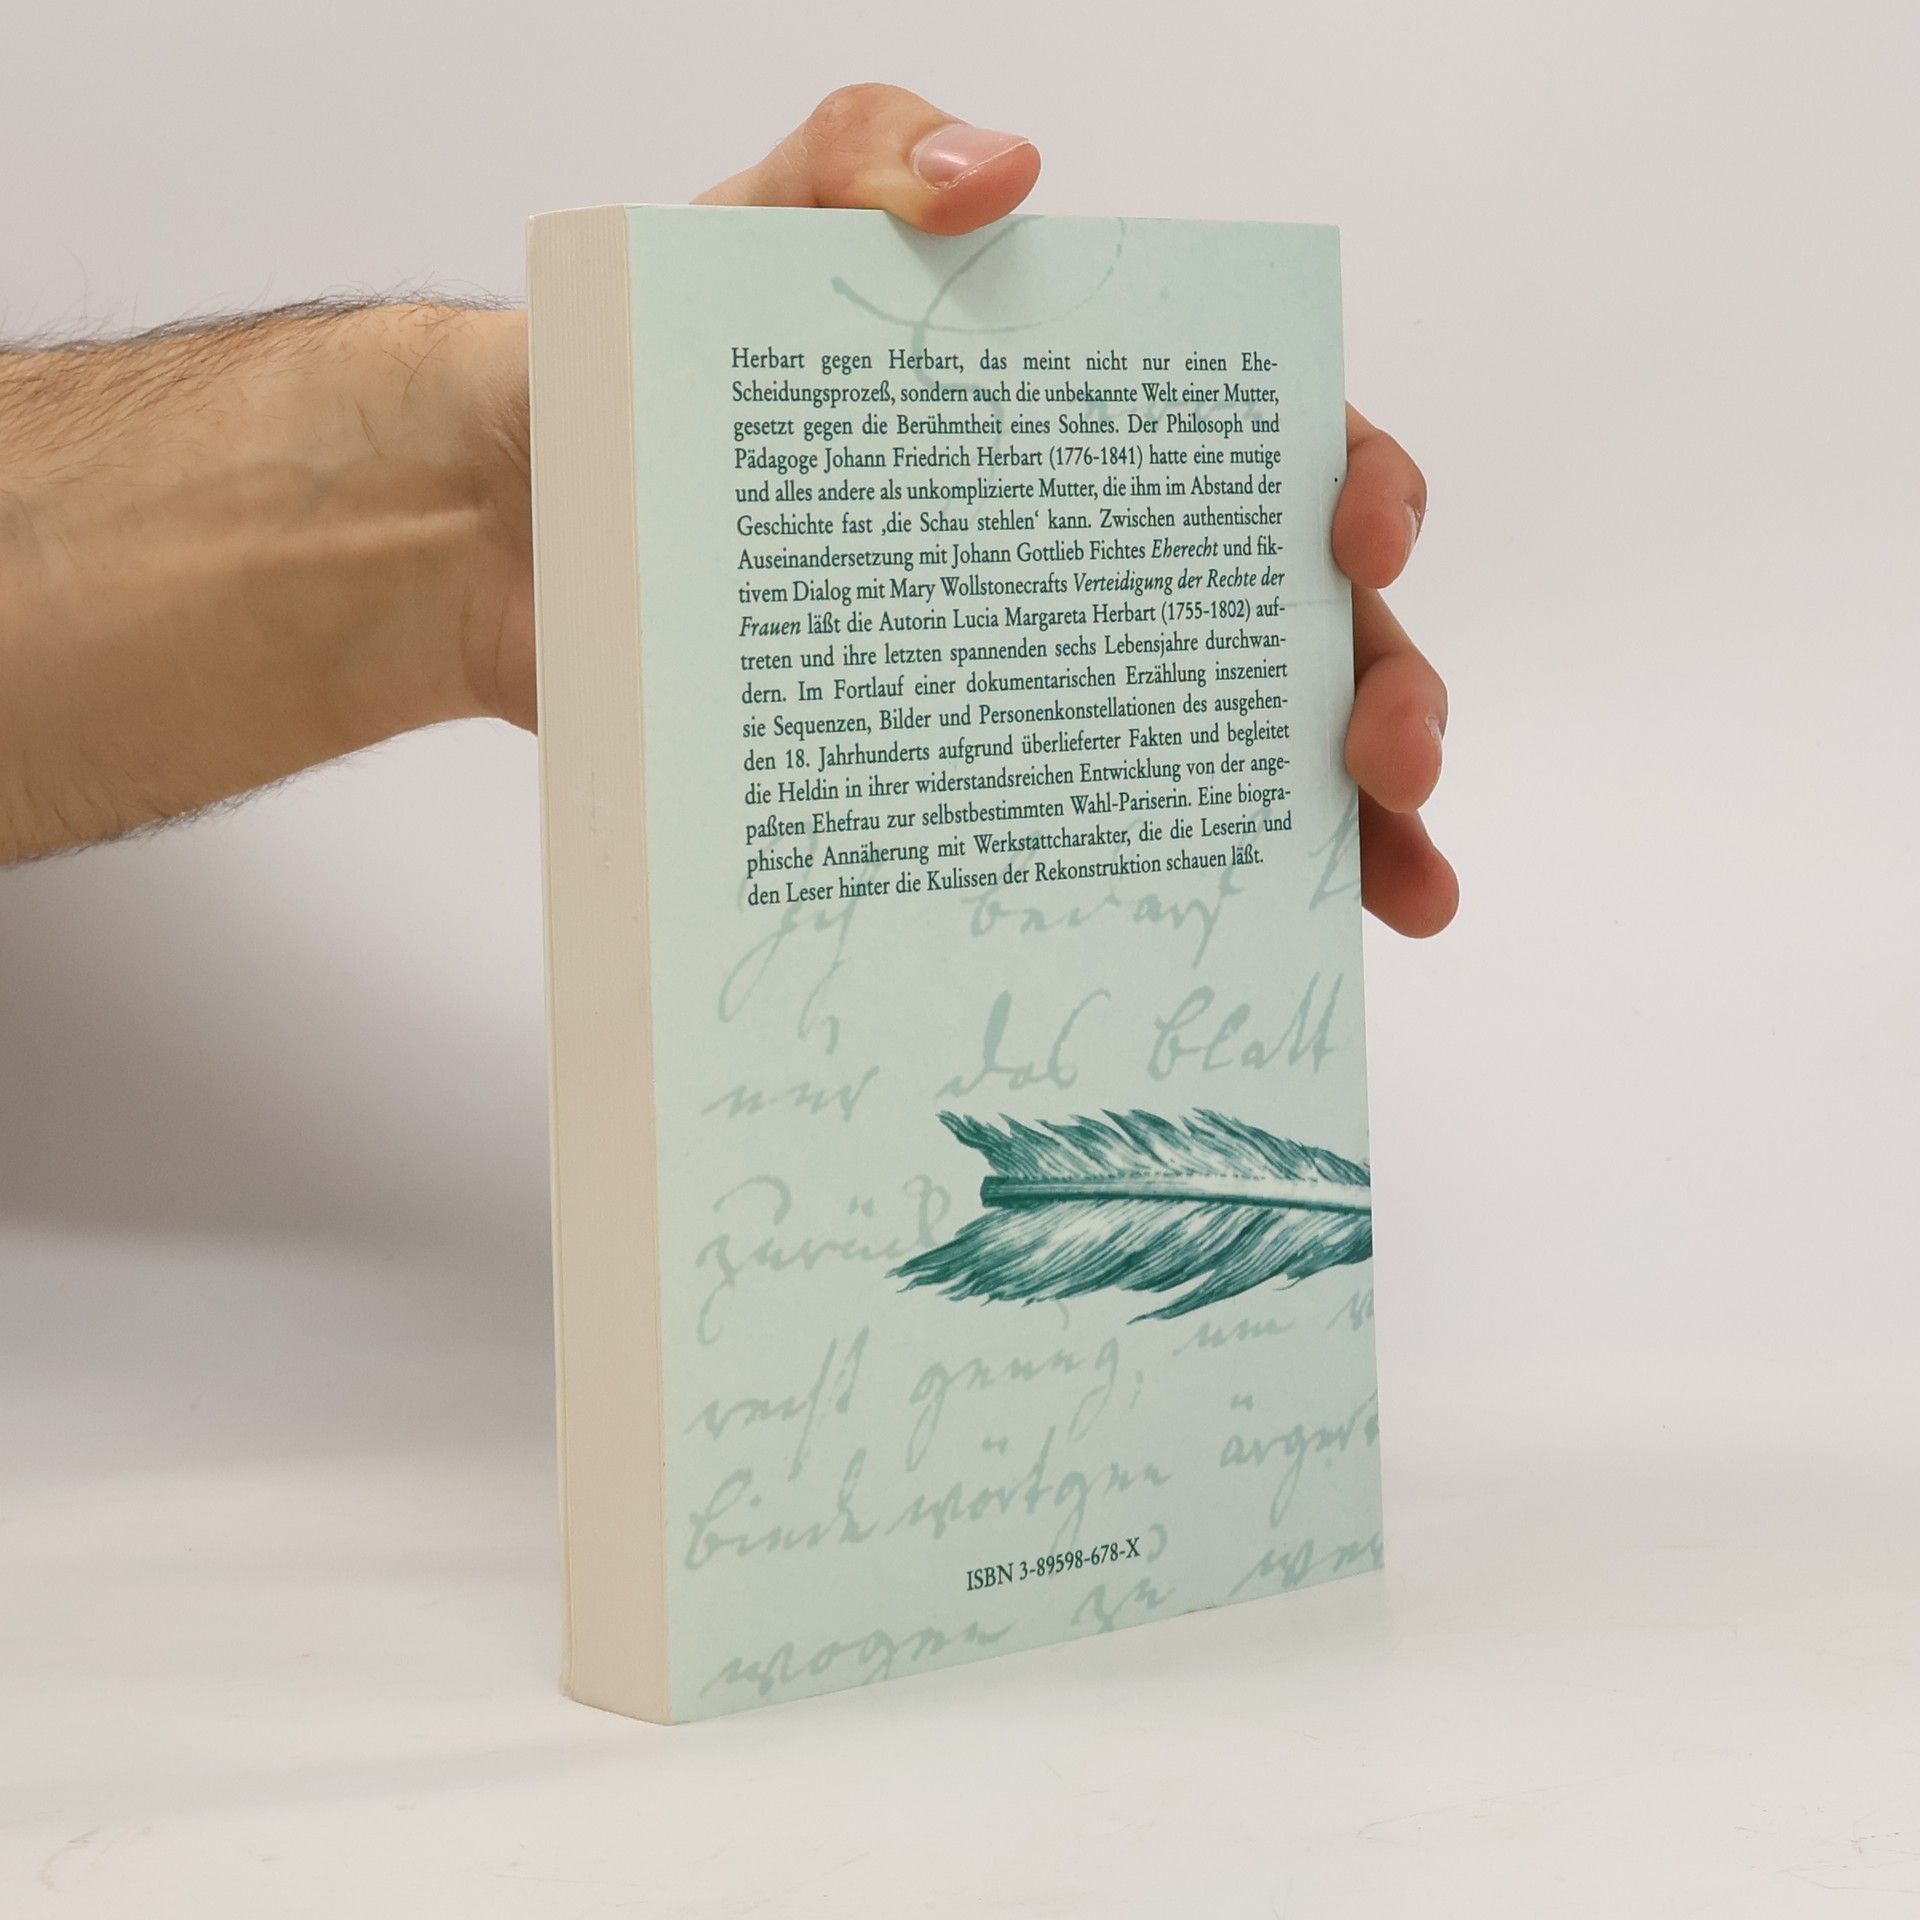 Herbart gegen Herbart, das meint nicht nur einen Ehe-
Scheidungsprozeß, sondern auch die unbekannte Welt einer Mutter,
gesetzt gegen die Berühmtheit eines Sohnes. Der Philosoph und
Pädagoge Johann Friedrich Herbart (1776-1841) hatte eine mutige
und alles andere als unkomplizierte Mutter, die ihm im Abstand der
Geschichte fast ‚die Schau stehlen‘ kann. Zwischen authentischer
Auseinandersetzung mit Johann Gottlieb Fichtes Eherecht und fik-
tivem Dialog mit Mary Wollstonecrafts Verteidigung der Rechte der
Frauen läßt die Autorin Lucia Margareta Herbart (1755-1802) auf-
treten und ihre letzten spannenden sechs Lebensjahre durchwan-
dern. Im Fortlauf einer dokumentarischen Erzählung inszeniert
sie Sequenzen, Bilder und Personenkonstellationen des ausgehen-
den 18. Jahrhunderts aufgrund überlieferter Fakten und begleitet
die Heldin in ihrer widerstandsreichen Entwicklung von der ange-
paßten Ehefrau zur selbstbestimmten Wahl-Pariserin. Eine biogra-
phische Annäherung mit Werkstattcharakter, die die Leserin und
den Leser hinter die Kulissen der Rekonstruktion schauen läßt.
Ich bedarf
nur das Blatt
zurück
genung, um
ärger
zu
ISBN 3-89598-678-X